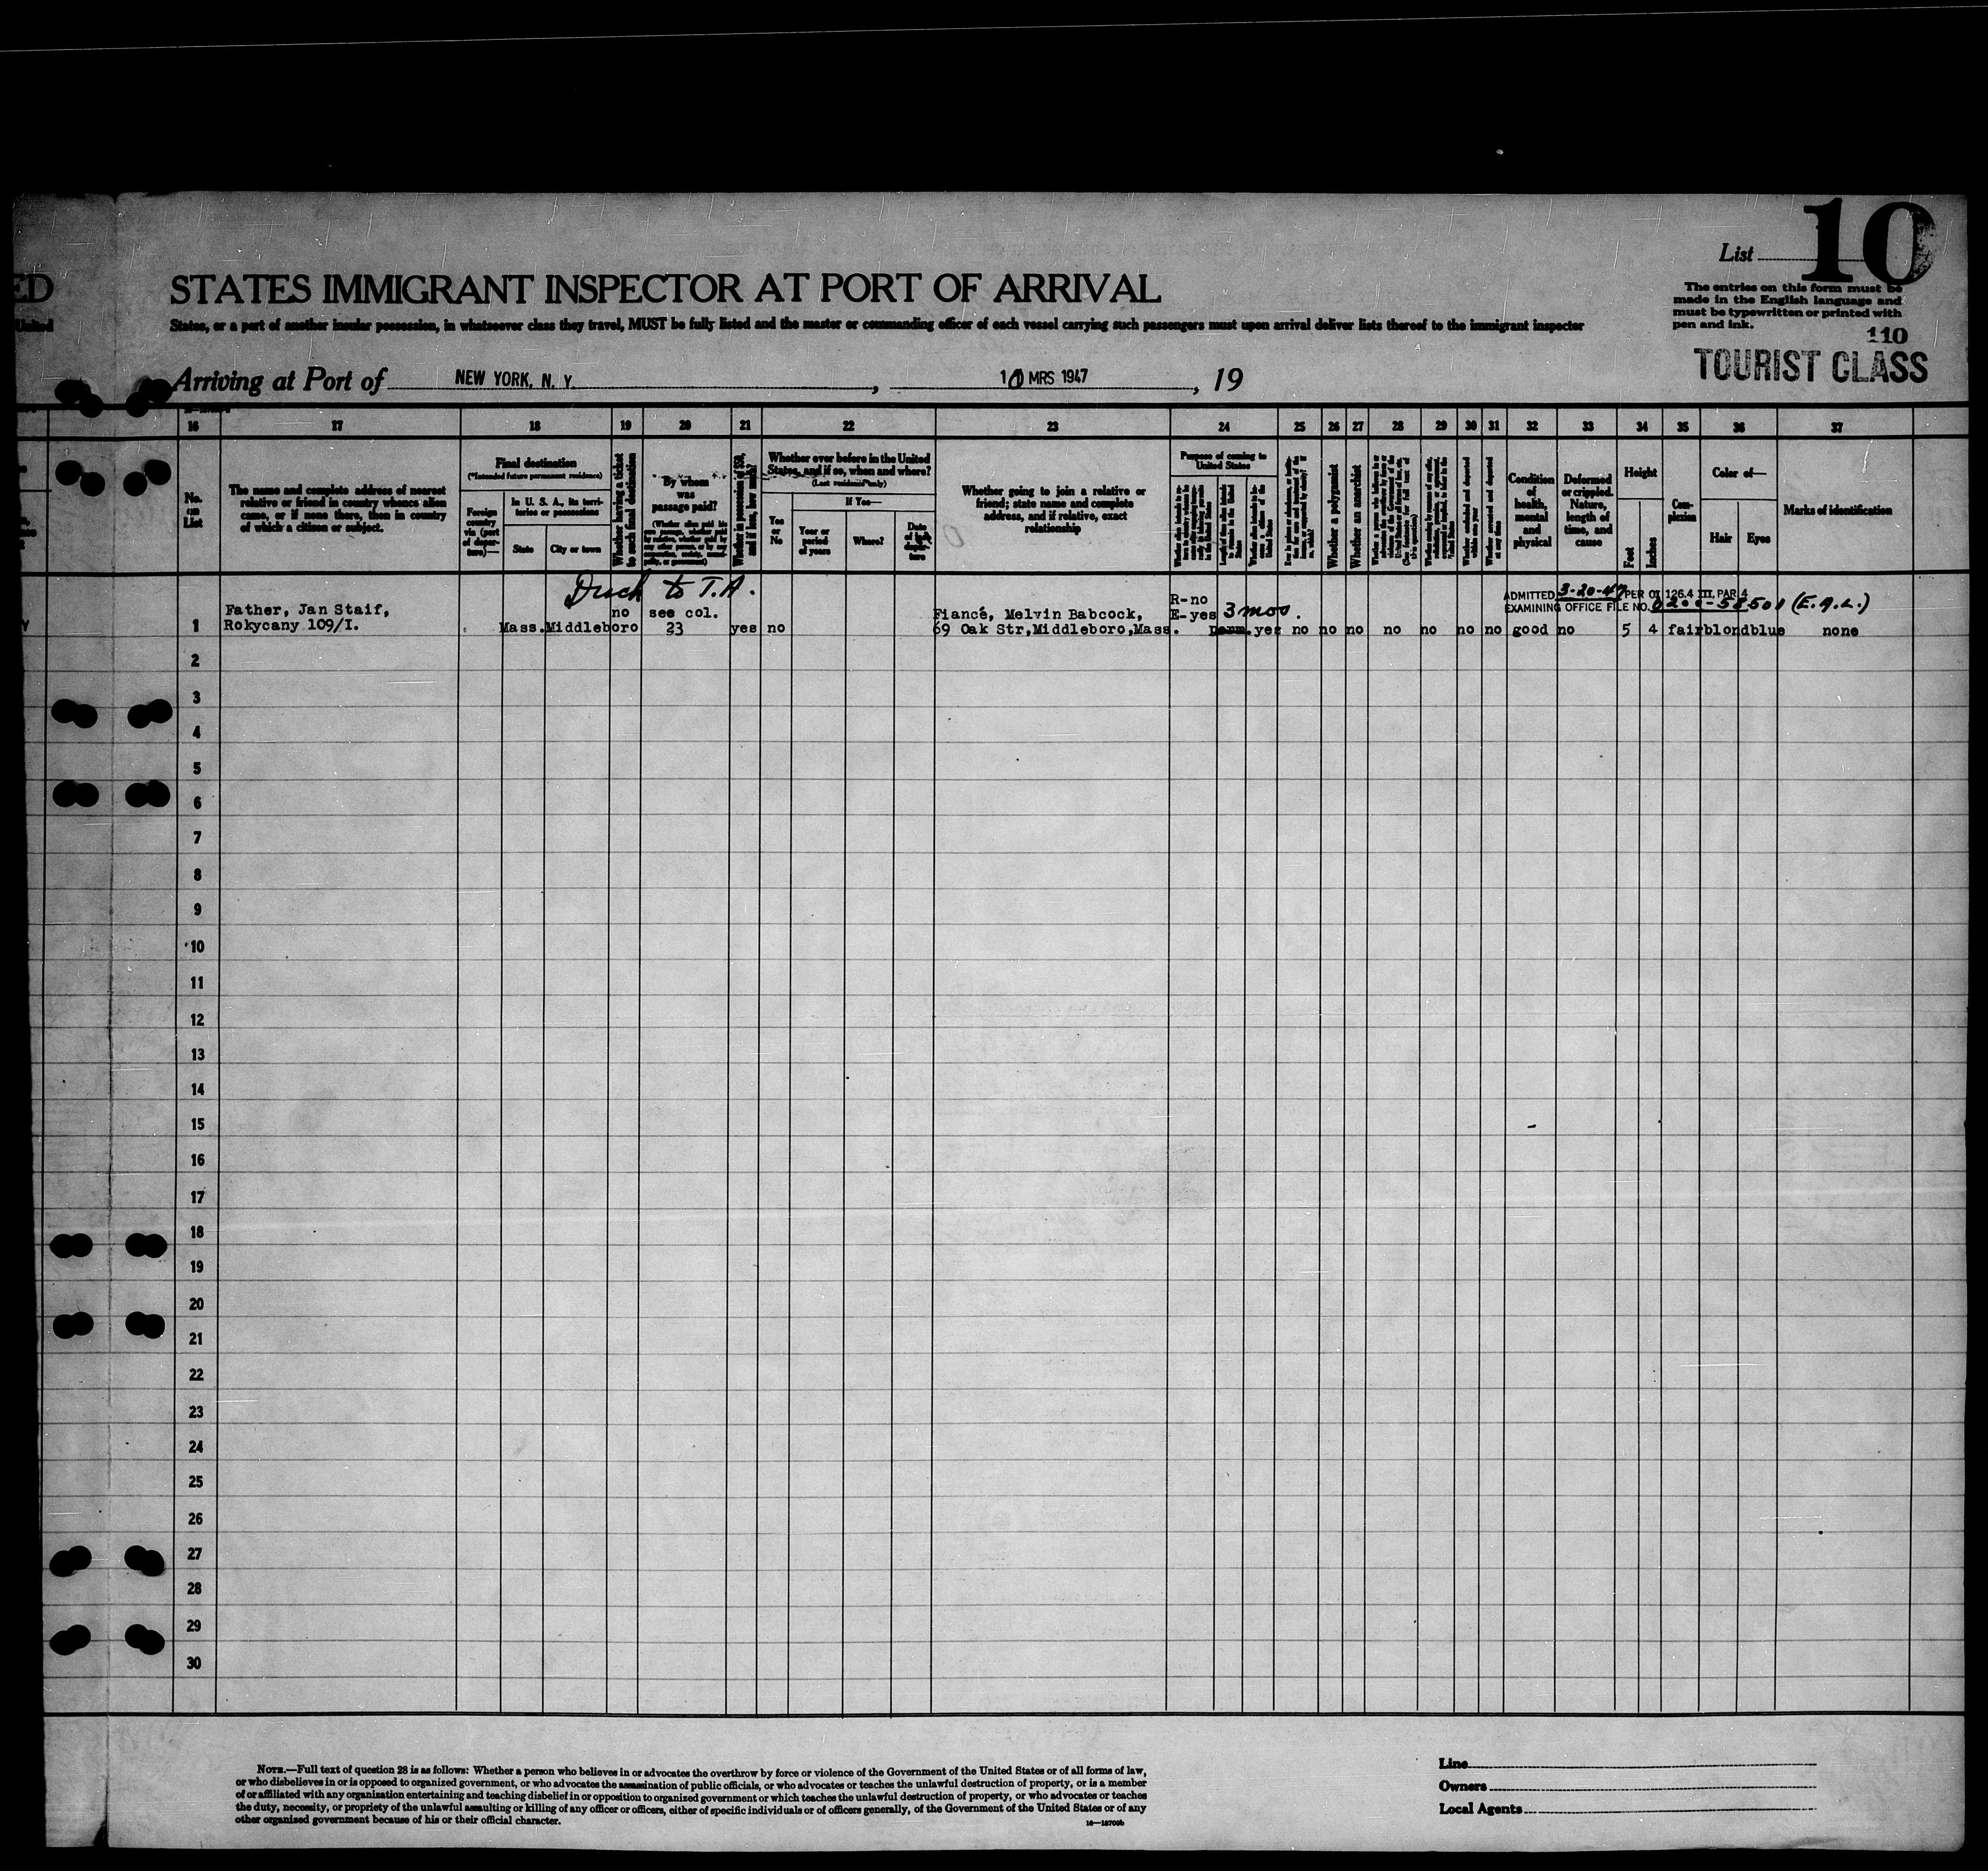 List 10
ED
STATES IMMIGRANT INSPECTOR AT PORT OF ARRIVAL
The entries on this form must be
made in the English language and
must be typewritten or printed with
pen and ink.
United
States, or a port of another insular possession, in whatsoever class they travel, MUST be fully listed and the master or commanding officer of each vessel carrying such passengers must upon arrival deliver lists thereof to the immigrant inspector
110
TOURIST CLASS
Arriving at Port of NEW YORK, N. Y. , MRS 1947 , 19
16 17 18 19 20 21 22 23 24 25 26 27 28 29 30 31 32 33 34 35 36 37
No.
on
List
The name and complete address of nearest
relative or friend in country whence alien
came, or if none there, then in country
of which a citizen or subject.
Final destination
(*Intended future permanent residence)
Foreign
country
via (port
of depar-
ture)—
In U. S. A., its terri-
tories or possessions
State
City or town
Whether having a ticket
to such final destination
By whom
was
passage paid?
Whether in possession of $50,
and if less, how much?
Whether ever before in the United
States, and if so, when and where?
(Last residence only)
Yes
or
No
If Yes—
Year or
period
of years
Where?
Whether going to join a relative or
friend; state name and complete
address, and if relative, exact
relationship
Purpose of coming to
United States
Whether a polygamist
Whether an anarchist
Condition
of
health,
mental
and
physical
Deformed
or crippled.
Nature,
length of
time, and
cause
Height
Feet
Inches
Com-
plexion
Color of—
Hair
Eyes
Marks of identification
to T.A.
ADMITTED 3-20-47 PER OI 126.4 III, PAR 4
EXAMINING OFFICE FILE NO. 0200-58501 (E.A.L.)
Father, Jan Staif,
Rokycany 109/I.
1
Mass. Middleboro
no
see col.
23
yes no
Fiancé, Melvin Babcock,
69 Oak Str, Middleboro, Mass.
R-no
E-yes 3 mos.
perm. yes no no no no no no no good no 5 4 fair blond blue none
2
3
4
5
6
7
8
9
10
11
12
13
14
15
16
17
18
19
20
21
22
23
24
25
26
27
28
29
30
NOTE.—Full text of question 28 is as follows: Whether a person who believes in or advocates the overthrow by force or violence of the Government of the United States or of all forms of law,
or who disbelieves in or is opposed to organized government, or who advocates the assassination of public officials, or who advocates or teaches the unlawful destruction of property, or is a member
of or affiliated with any organization entertaining and teaching disbelief in or opposition to organized government or which teaches the unlawful destruction of property, or who advocates or teaches
the duty, necessity, or propriety of the unlawful assaulting or killing of any officer or officers, either of specific individuals or of officers generally, of the Government of the United States or of any
other organized government because of his or their official character.
16—18709b
Line
Owners
Local Agents